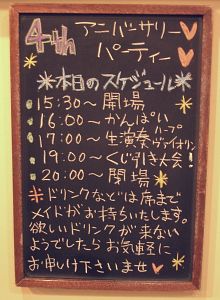 4th アニバーサリー♥
パーティー♥
＊本日のスケジュール＊
15:30～開場
16:00～かんぱい
17:00～生演奏 ハープ ヴァイオリン
19:00～くじ引き大会!
20:00～閉場＊
＊ドリンクなどは席まで
メイドがお持ちいたします。
欲しいドリンクが来ない
ようでしたらお気軽に
お申し付け下さいませ♥